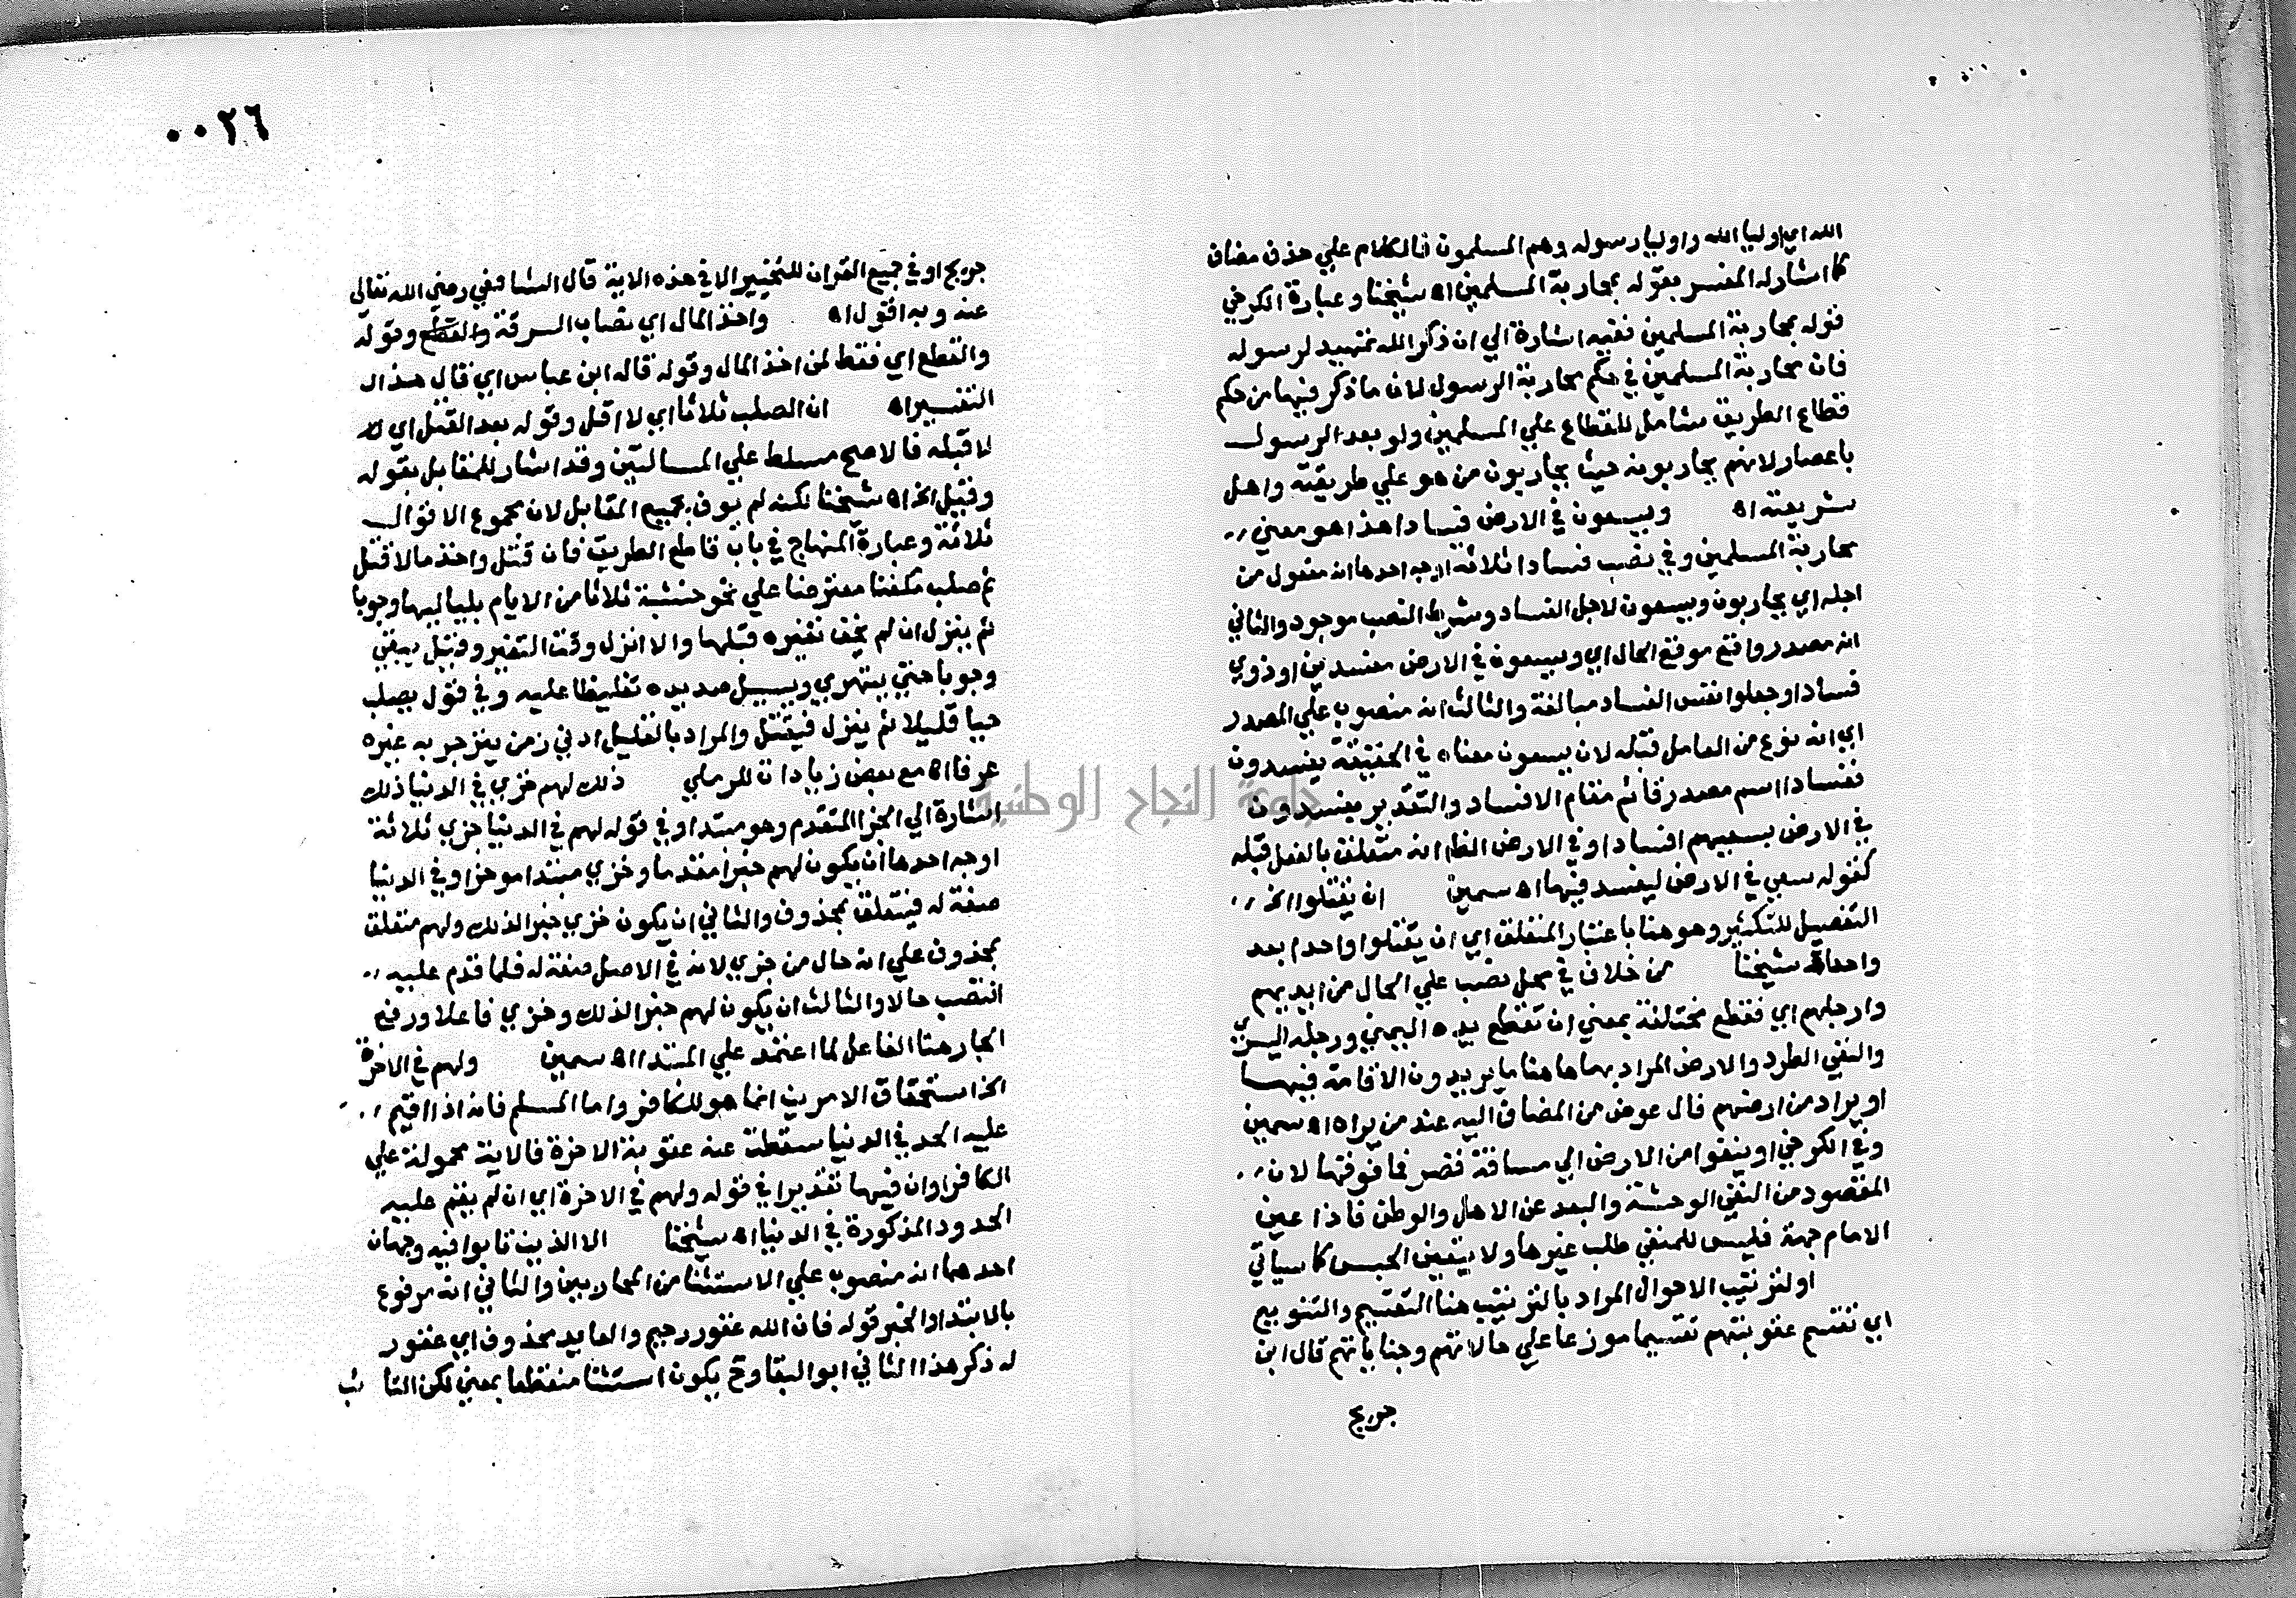 الله اي اوليا الله واوليا رسوله وهم المسلمون فالكلام علي حذف مضاف
كما اشار له المفسر بقوله بمحاربة المسلمين اه شيخنا وعبارة الكرخي
قوله بمحاربة المسلمين نفيه اشارة الي ان ذكر الله تمهيد لرسوله
فان محاربة المسلمين في حكم محاربة الرسول لان ما ذكر فيها من حكم
قطاع الطريق شامل للقطاع علي المسلمين ولو بعد الرسول
باعصار لانهم يحاربونه حيث يحاربون من هو علي طريقته واهل
شريعته اه ويسعون في الارض فسادا هذا هو معني
محاربة المسلمين وفي نصب فسادا ثلاثة اوجه احدها انه مفعول من
اجله اي يحاربون ويسعون لاجل الفساد وشرط النصب موجود والثاني
انه مصدر واقع موقع الحال اي ويسعون في الارض مفسدين او ذوي
فساد او جعلوا نفس الفساد مبالغة والثالث انه منصوب علي المصدر
اي انه نوع من العامل قبله لان يسعون معناه في الحقيقة يفسدون
ففسادا اسم مصدر قائم مقام الافساد والتقدير يفسدون
في الارض بسعيهم افسادا وفي الارض الظاانه متعلق بالفعل قبله
كقوله سعي في الارض ليفسد فيها اه سمين ان يقتلوا الخ
التفصيل للتكثير وهو هنا باعتبار المتعلق اي ان يقتلوا واحدا بعد
واحد اه شيخنا من خلاف في محل نصب علي الحال من ايديهم
وارجلهم اي فقطع مختلفة بمعني ان تقطع يده اليمني ورجله اليسري
والنفي الطرد والارض المراد بها هاهنا ما يريدون الاقامة فيها
او يراد من ارضهم فال عوض من المضاف اليه عند من يراه اه سمين
وفي الكرخي او ينفوا من الارض الي مسافة قصر فما فوقها لان
المقصود من النفي الوحشة والبعد عن الاهل والوطن فاذا عين
الامام جهة فليس للمنفي طلب غيرها ولا يتعين الحبس كما سياتي
او لترتيب الاحوال المراد بالترتيب هنا التقسيم والتنويع
اي تقسم عقوبتهم تقسيما موزعا علي حالاتهم وجناياتهم قال ابن
جريج
٠٠٢٦
جريج او في جميع القران للتخيير الا في هذه الاية قال الشافعي رضي الله تعالي
عنه وبه اقول اه واخذ المال اي نصاب السرقة والقطع وقوله
والقطع اي فقط لمن اخذ المال وقوله قاله ابن عباس اي قال هذا
التفسير اه ان الصلب ثلاثا اي لا اقل وقوله بعد القتل اي
لا قبله فالاصح مسلط علي المسالتين وقد اشار للمقابل بقوله
وقيل الخ اه شيخنا لكنه لم يوف بجميع المقابل لان مجموع الاقوال
ثلاثة وعبارة المنهاج في باب قاطع الطريق فان قتل واخذ مالا قتل
ثم صلب مكفنا معترضا علي نحو خشبة ثلاثا من الايام بلياليها وجوبا
ثم ينزل ان لم يخف تغيره قبلها والا انزل وقت التغير وقيل يبقي
وجوبا حتي يتهري ويسيل صديده تغليظا عليه وفي قول يصلب
حيا قليلا ثم ينزل فيقتل والمراد بالقليل ادني زمن ينزجر به غيره
عرفا اه مع بعض زيادات للرملي ذلك لهم خزي في الدنيا ذلك
اشارة الي الجزا المتقدم وهو مبتدا وفي قوله لهم في الدنيا خزي ثلاثة
اوجه احدها ان يكون لهم خبرا مقدما وخزي مبتدا موخرا وفي الدنيا
صفة له فيتعلق بمحذوف والثاني ان يكون خزي خبرا لذلك ولهم متعلق
بمحذوف علي انه حال من خزي لانه في الاصل صفة له فلما قدم عليه
انتصب حالا والثالث ان يكون لهم خبرا لذلك وخزي فاعلا ورفع
الجار هنا الفاعل لما اعتمد علي المبتدا اه سمين ولهم في الاخرة
الخ استحقاق الامرين انما هو للكافر واما المسلم فانه اذا اقيم
عليه الحد في الدنيا سقطت عنه عقوبة الاخرة فالاية محمولة علي
الكافر او ان فيها تقديرا في قوله ولهم في الاخرة اي ان لم يقم عليه
الحدود المذكورة في الدنيا اه شيخنا الا الذين تابوا فيه وجهان
احدهما انه منصوب علي الاستثنا من المحاربين والثاني انه مرفوع
بالابتدا والخبر قوله فان الله غفور رحيم والعايد محذوف اي غفور
له ذكر هذا الثاني ابو البقا وح يكون استثنا منقطعا بمعني لكن التائب
جامعة النجاح الوطنية